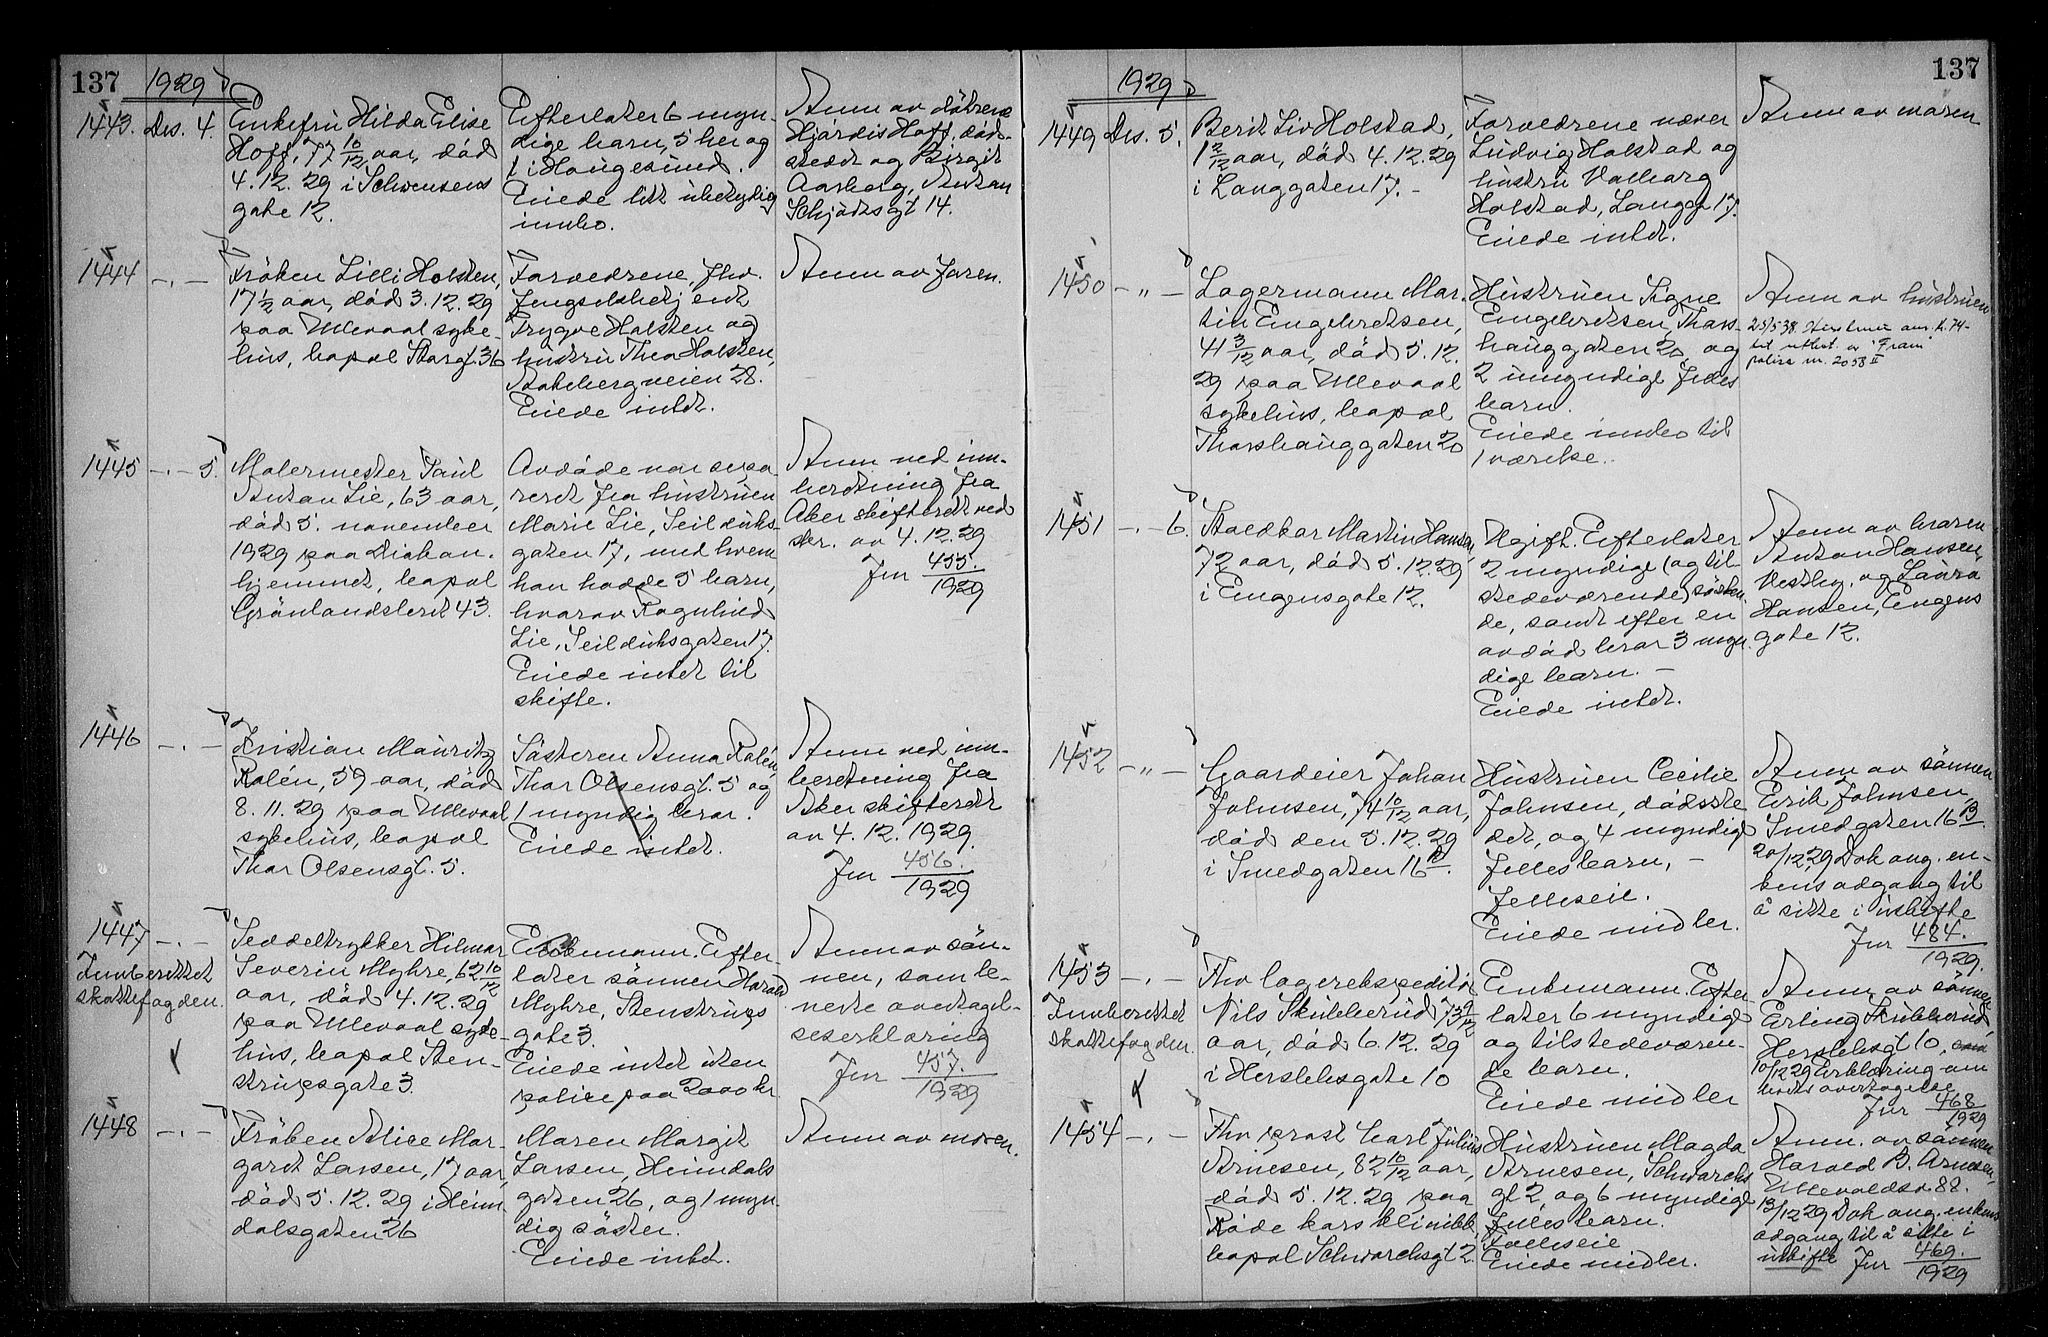 137
1929
1443. Des. 4.
Enkefru Hilda Elise
Hoff, 77 10/12 aar, död
4.12.29 i Schwensens
gate 12.
Efterlater 6 myn-
dige barn, 5 her og
1 i Haugesund.
Eiede litt ubetydelig
innbo.
Anm av dötrene
Hjördis Hoff, död-
stedet og Birgit
Aarberg, Anton
Schjödtsgt 14.
1444 -.-
Fröken Lilli Holsten,
17 1/2 aar, död 3.12.29
paa Ullevaal syke-
hus, bopæl Storgt. 36
Forældrene, fhv.
fengselsbetjent
Trygve Holsten og
hustru Thea Holsten,
Stakebergveien 28.
Eiede intet.
Anm av faren.
1445 -.- 5.
Malermester Paul
Anton Lie, 63 aar,
död 5. november
1929 paa Diakon-
hjemmet, bopæl
Grönlandsleret 43.
Avdöde var sepa-
reret fra hustruen
Marie Lie, Seilduks-
gaten 17, med hvem
han hadde 5 barn,
hvorav Ragnhild
Lie, Seilduksgaten 17.
Eiede intet til
skifte.
Anm ved inn-
beretning fra
Aker skifterett ved
skr. av 4.12.29
Jnr 455./1929
1446 -.-
Kristian Mauritz
Rolén, 59 aar, död
8.11.29 paa Ullevaal
sykehus, bopæl
Thor Olsensgt. 5.
Søsteren Anna Rolén,
Thor Olsensgt. 5 og
1 myndig bror.
Eiede intet.
Anm ved inn-
beretning fra
Aker skifterett
av 4.12.1929.
Jnr 456./1929
1447 -.-
Innberettet
skattefogden.
Seddeltrykker Hilmar
Severin Myhre, 62 10/12
aar, död 4.12.29
paa Ullevaal syke-
hus, bopæl Sten-
strupsgate 3.
Enkemann. Efter-
later sönnen Harald
Myhre, Stenstrups
gate 3.
Eiede intet uten
police paa 2000 kr
Anm av sön-
nen, som le-
verte overtagel-
seserklæring
Jnr 457./1929
1448 -.-
Fröken Alice Mar-
gret Larsen, 17 aar,
död 5.12.29 i Heim-
dalsgaten 26
Moren Margit
Larsen, Heimdals
gaten 26, og 1 myn-
dig søster.
Eiede intet.
Anm av moren.
137
1929
1449 Des. 5.
Berit Liv Holstad,
1 2/12 aar, död 4.12.29
i Langgaten 17. -
Forældrene
Ludvig Holstad og
hustru Valborg
Holstad, Langgt 17.
Eiede intet.
Anm av moren
1450 -"-
Lagermann Mar-
tin Engebretsen,
41 3/12 aar, död 5.12.
29 paa Ullevaal
sykehus, bopæl
Thorshauggaten 20
Hustruen Signe
Engebretsen, Thors-
hauggaten 20, og
2 umyndige felles
barn.
Eiede innbo til
1 værelse.
Anm av hustruen
25/5 38. Hustruen anm. t. 74-
tit utbet. av "Fram"
polise nr. 2058 II
1451 -.- 6.
Staldkar Martin Hansen,
72 aar, död 5.12.29
i Eugensgate 12.
Ugift. Efterlater
2 myndige (og til
stedeværende) sösken-
de, samt efter en
avdöd bror 3 myn-
dige barn. -
Eiede intet.
Anm av broren
Anton Hansen,
Vestby, og Laura
Hansen, Eugens
gate 12.
1452 -"-
Gaardeier Johan
Johnsen, 74 10/12 aar,
död den 5.12.29
i Smedgaten 16 B.
Hustruen Cecilie
Johnsen, dödsste-
det, og 4 myndige
fellesbarn, -
felleseie.
Eiede midler.
Anm av sönnen
Erik Johnsen,
Smedgaten 16 B.
20/12 29 Dok ang. en-
kens adgang til
å sitte i uskifte
Jnr 484./1929.
1453 -.-
Innberettet
skattefogden.
Fhv lagerekspeditör
Nils Skibberud, 73 9/12
aar, död 6.12.29
i Herslebsgate 10
Enkemann. Efter-
later 6 myndige
og tilstedeværen-
de barn.
Eiede midler
Anm. av sönnen
Erling Skibberud,
Herslebsgt 10,
10/12 29 Erklæring om
boets overtagelse
Jnr 468/1929
1454 -.-
Fhv prost Carl Julius
Arnesen, 82 10/12 aar,
död 5.12.29 paa
Röde kors klinikk
bopæl Schwarchsgt 2.
Hustruen Magda
Arnesen, Schwarchs
gt 2, og 6 myndige
fellesbarn.
Felleseie
Eiede midler.
Anm. av sönnen
Harald B. Arnesen,
Ullevoldsv. 88.
13/12 29 Dok ang. enkens
adgang til å sitte i
uskifte Jnr 469./1929